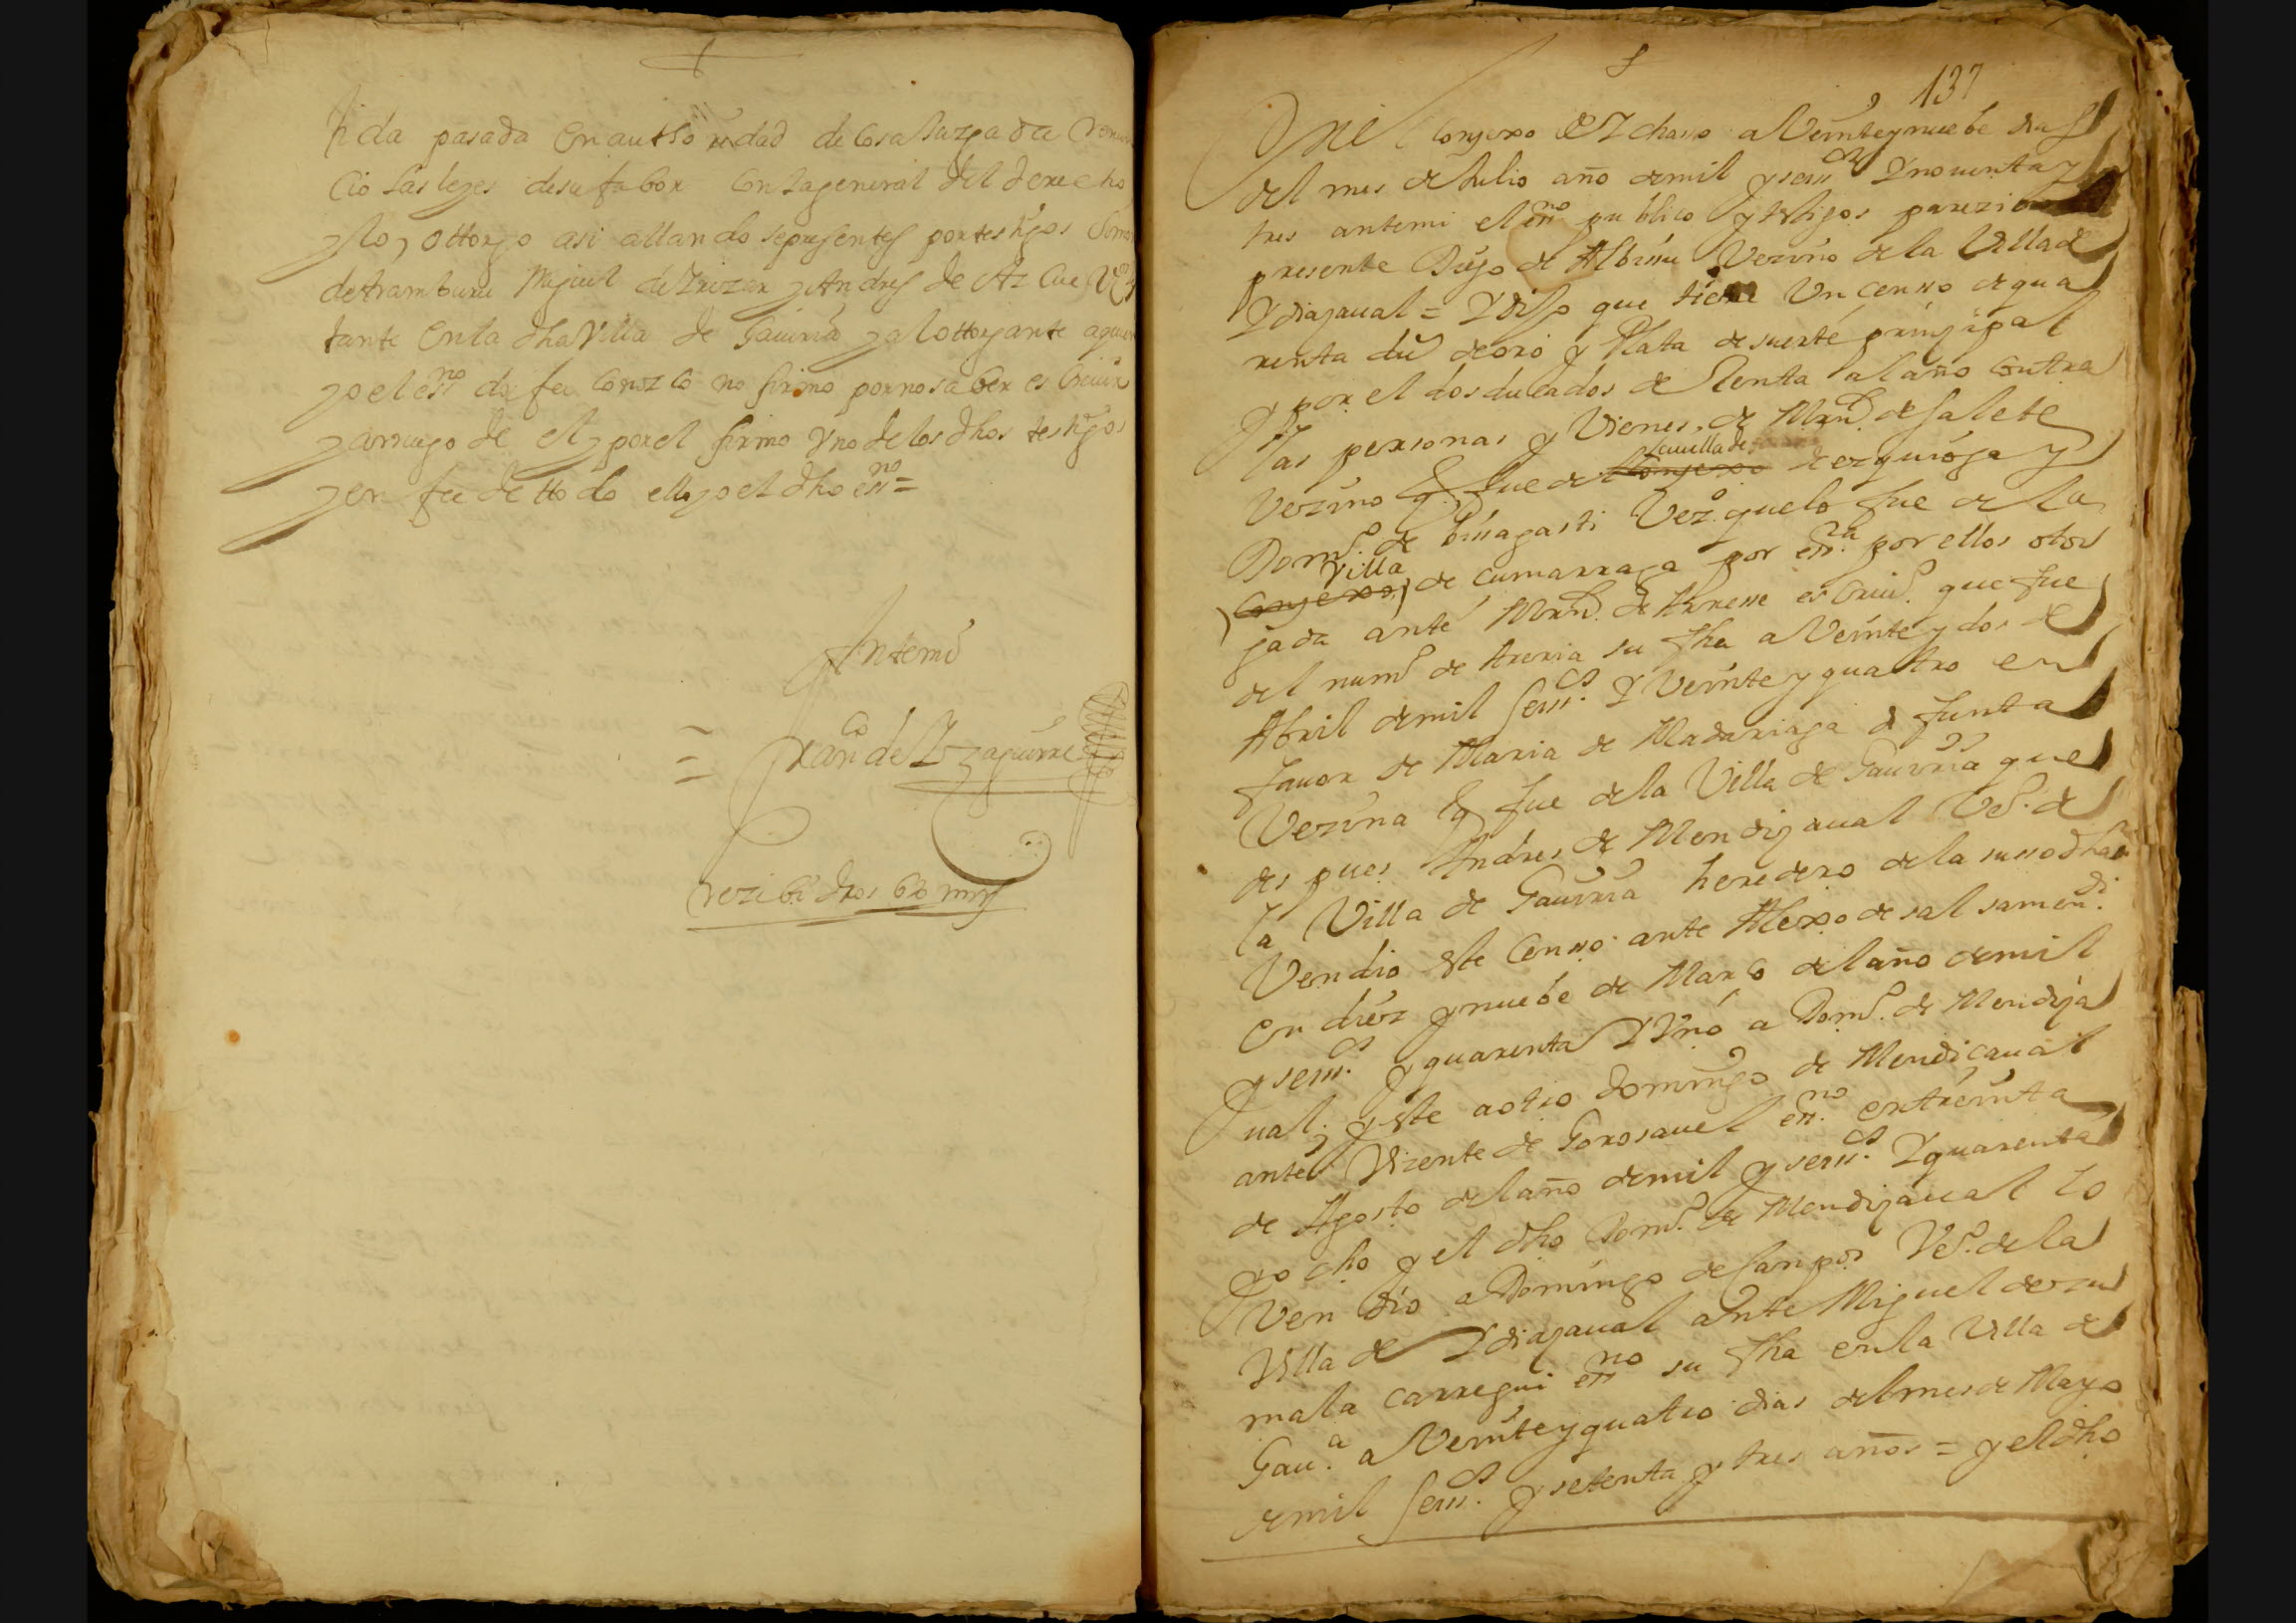 tida pasada en authoridad de cosa Juzgada renun
cio las leyes desu fabor con la general del derecho
y lo, ottorgo asi allando se presentes por testigos
de Aramburu Miguel de Yrizar y Andres de Azcue
tante en la dha Villa de Gauiria y al ottorgante aquien
yo el essno doi fee conozco no firmo por no saber escriuir
y arruego de el y por el firmo Vno de los dhos testigos
y en fee de tto do ello yo el dho essno =
Antemi
= Franco de Yzaguirre
rezibi dros 60 mrs
137
En el Conzexo de Ychaso a Veinte y nuebe dias
del mes de Julio año de mil y seiscs Y nouenta y
tres antemi el essno publico y testigos parezio
presente Diego de Albisu Vezino de la Villa de
Ydiazaual = Y dijo que tiene Un censso de qua
renta dus de oro y Plata de suerte prinzipal
y por el dos ducados de Renta al año contra
las personas y Vienes de Mrn de Salete
Vezino q fue de la uilla de Conzexo de ezquioga y
Domo de binagasti Vezo que lo fue de la
Villa
Conzexo, de cumarraga por essra por ellos otor
gada ante Mrn de Arrese escriuo que fue
del numo de Areria su fha a Veinte y dos de
Abril de mil seiscs Y Veinte y quatro en
fauor de Maria de Madariaga difunta
Vezina q fue de la Villa de Gauiria que
despues Andres de Mendizaual Veo de
la Villa de Gauiria heredero de la susso dha
Vendio este Censso ante Alexo de salsamendi
en diez y nuebe de Março del año de mil
y seiscs y quarenta Y Vno a Domo de Mendiza
ual, y este a otro domingo de Mendicaual
ante Vizente de Gorosauel essno en treinta
de Agosto del año de mil y seiscs Y quarenta
y ocho y el dho Domo de Mendizaual lo
Vendio a Domingo de Campos Veo de la
Villa de Ydiazaual ante Miguel de zu
mala carregui essno su fha en la Villa de
Gaua a Veinte y quatro dias del mes de Mayo
de mil seiscs y setenta y tres años = y el dho